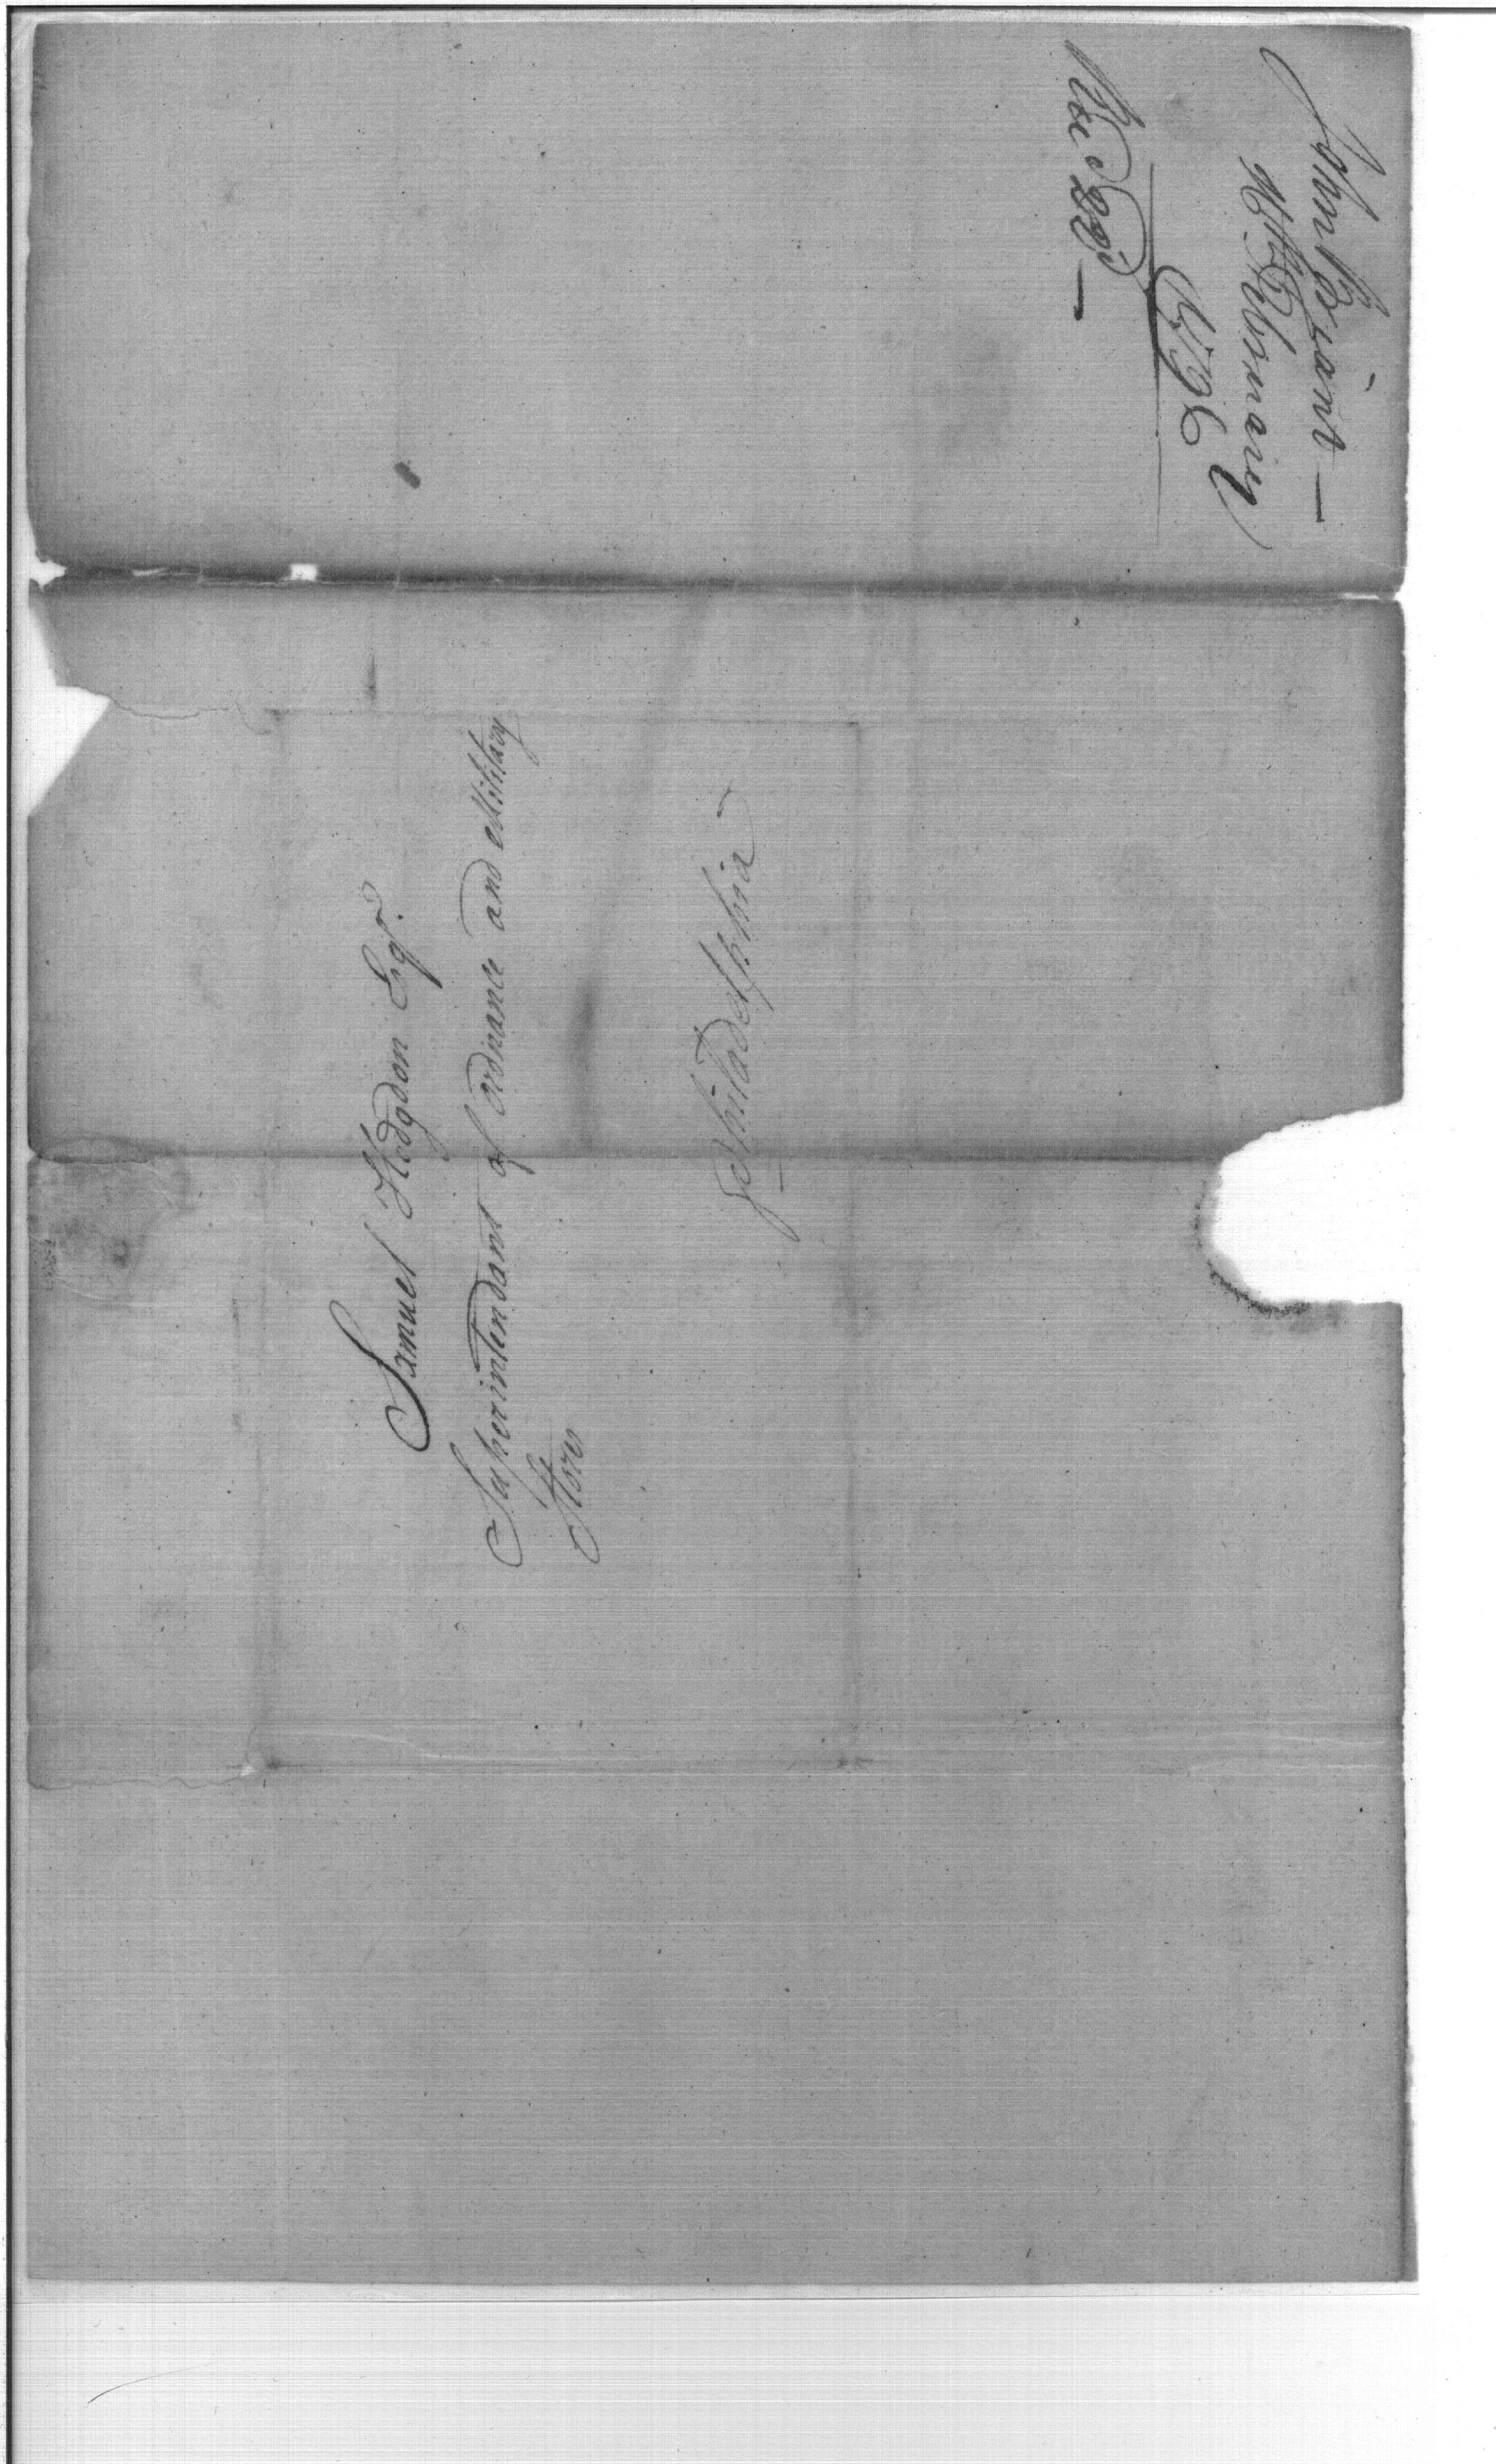 Samuel Hodgdon Esqr.
Superintendant of Ordnance and Military
Stores
Philadelphia
John Bryant —
10th February
1792